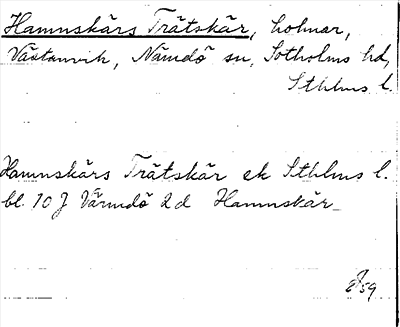 Hamnskärs Trätskär, holmar,
Västanvik, Nämdö sn, Sotholms hd,
Sthlms l.
Hamnskärs Trätskär ek Sthlms l.
bl. 70 J Värmdö 2 d Hamnskär_
59